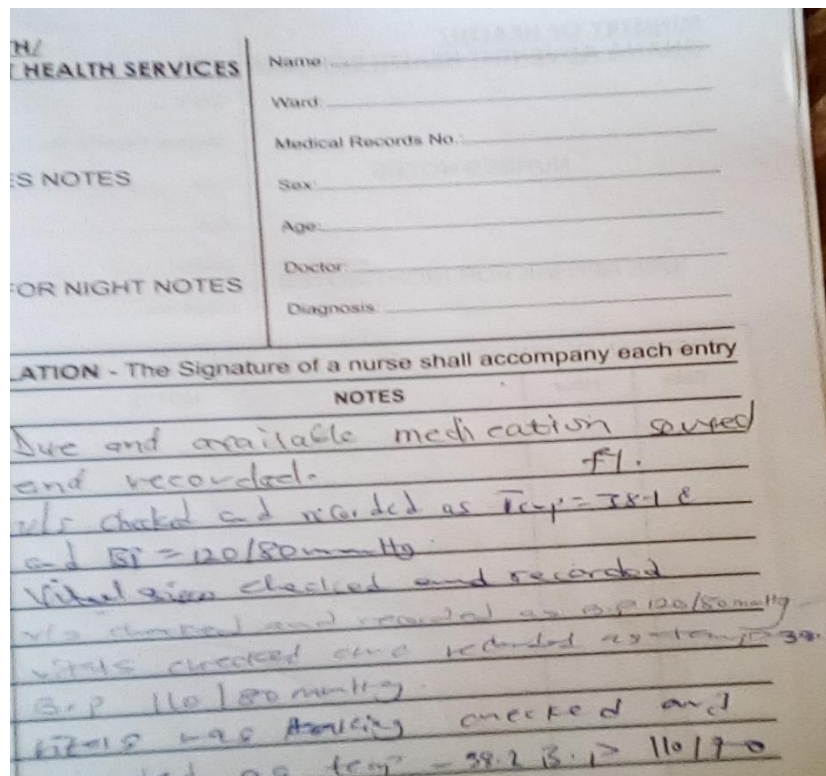 H/
HEALTH SERVICES
Name
Ward:
Medical Records No.:
S NOTES
Sex:
Age:
Doctor:
OR NIGHT NOTES
Diagnosis:
ATION - The Signature of a nurse shall accompany each entry
NOTES
Due and available medication served
and recorded.
checked and recorded as Temp = 38.1 c
and BP = 120/80 mmHg
Vital sign checked and recorded
v/s checked and recorded as B.P 120/80mmHg
vitals checked and recorded as temp 38.
B.P 110/80 mmHg.
vitals was checked and
as temp - 38.2 B.P 110/90